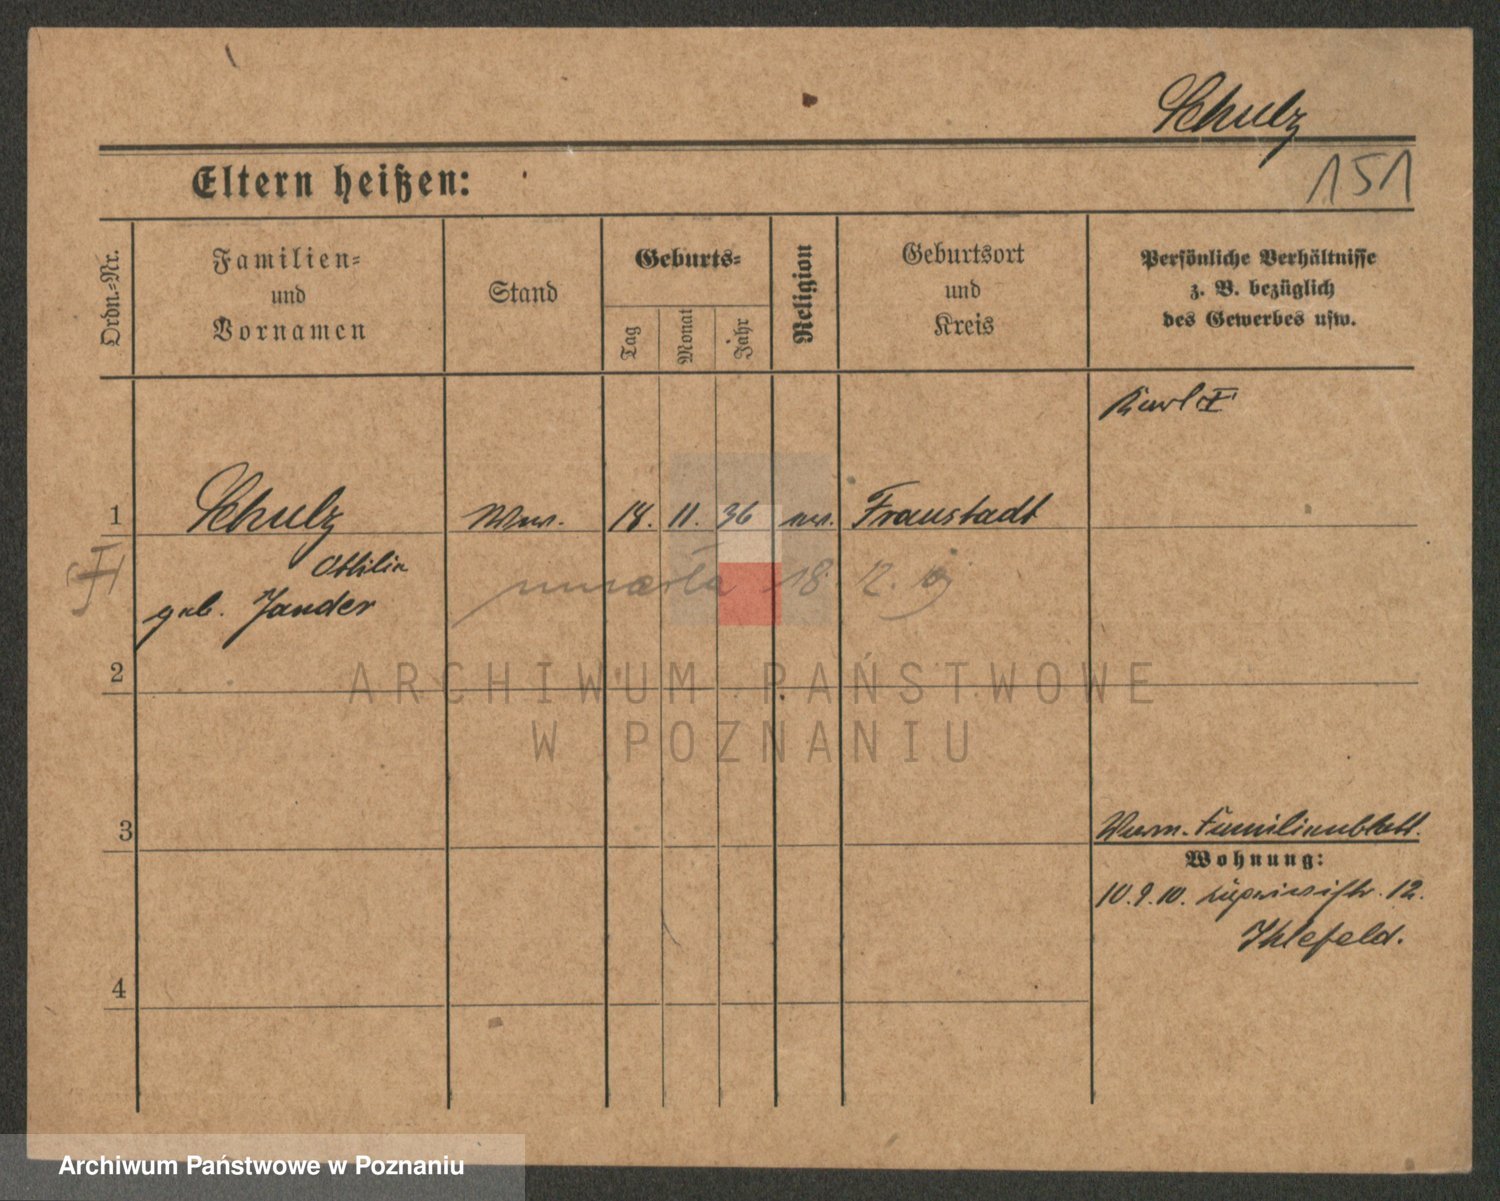 Schulz
151
Eltern heißen:
Ordn.-Nr.
Familien-
und
Vornamen
Stand
Geburts-
Tag
Monat
Jahr
Religion
Geburtsort
und
Kreis
Persönliche Verhältnisse
z. B. bezüglich
des Gewerbes usw.
Karl
1
Schulz
Ww.
18. 11. 36
ev.
Fraustadt
Ottilie
geb. Jander
umarła 18. 12.
2
3
4
Familienblatt.
Wohnung:
10. 9. 10. 12.
Ihlefeld.
ARCHIWUM PAŃSTWOWE
W POZNANIU
Archiwum Państwowe w Poznaniu